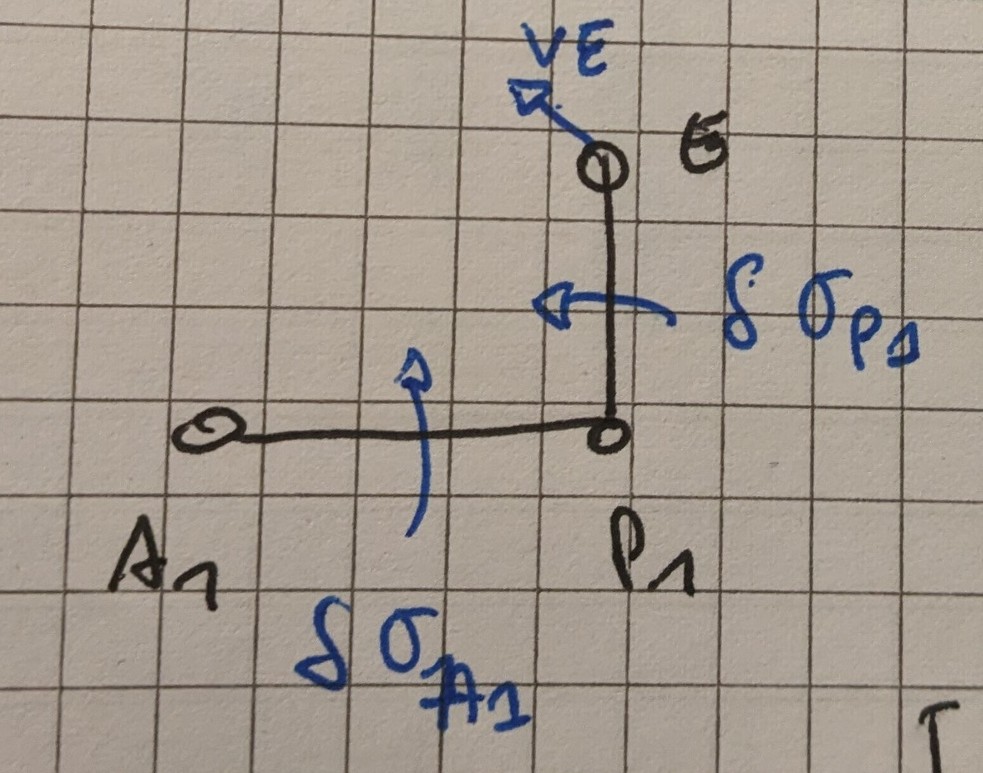 VE
E
δ σP1
A1
P1
δ σA1